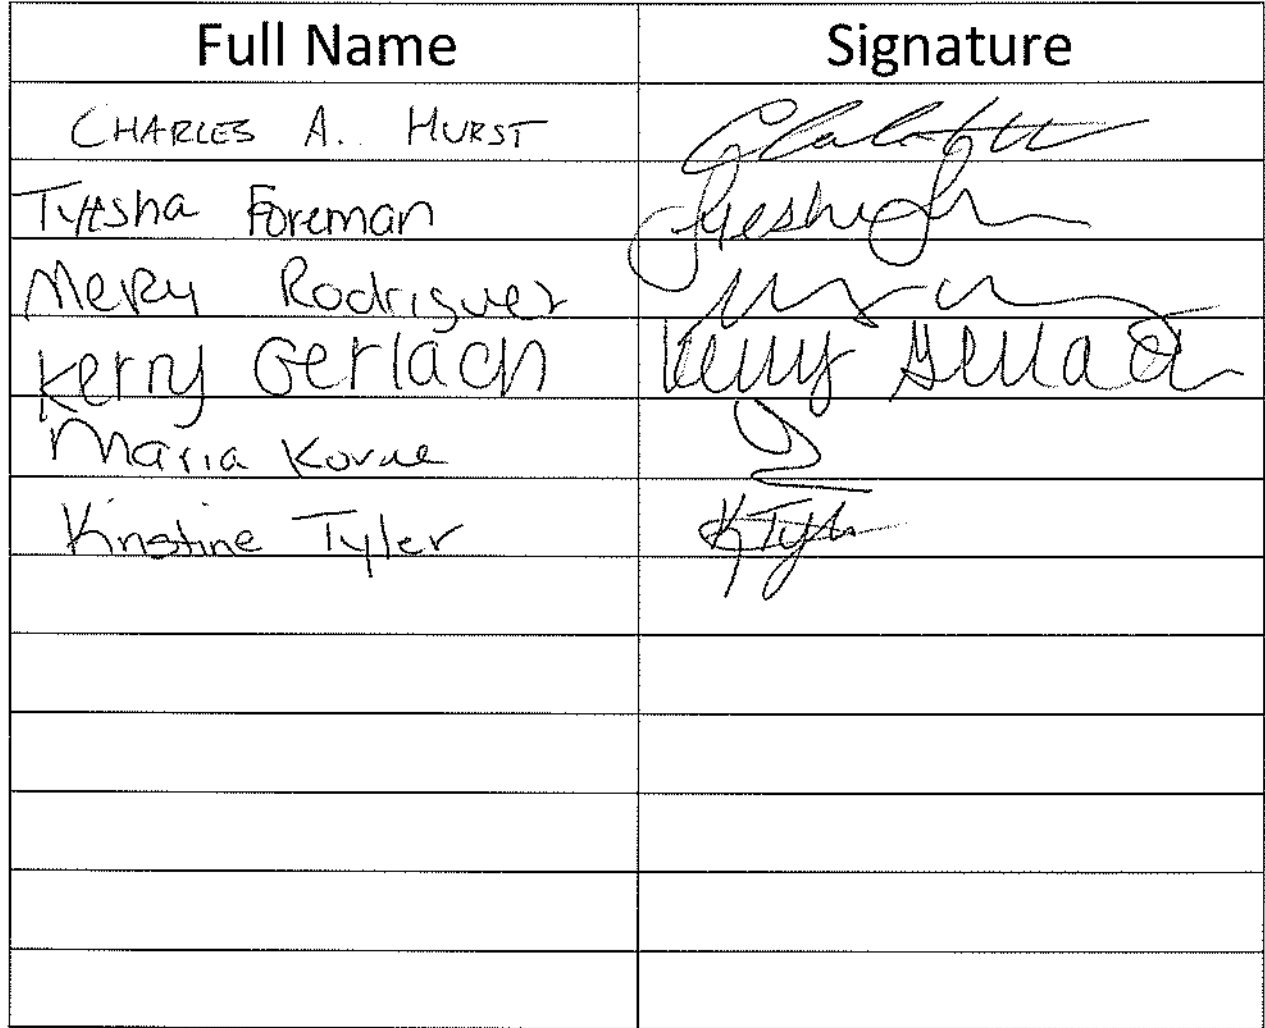 Full Name Signature
CHARLES A. HURST
Foreman
Mery Rodriguez
Kerry Gerlach Kerry Gerlach
Maria
Kristine Tyler K Tyler